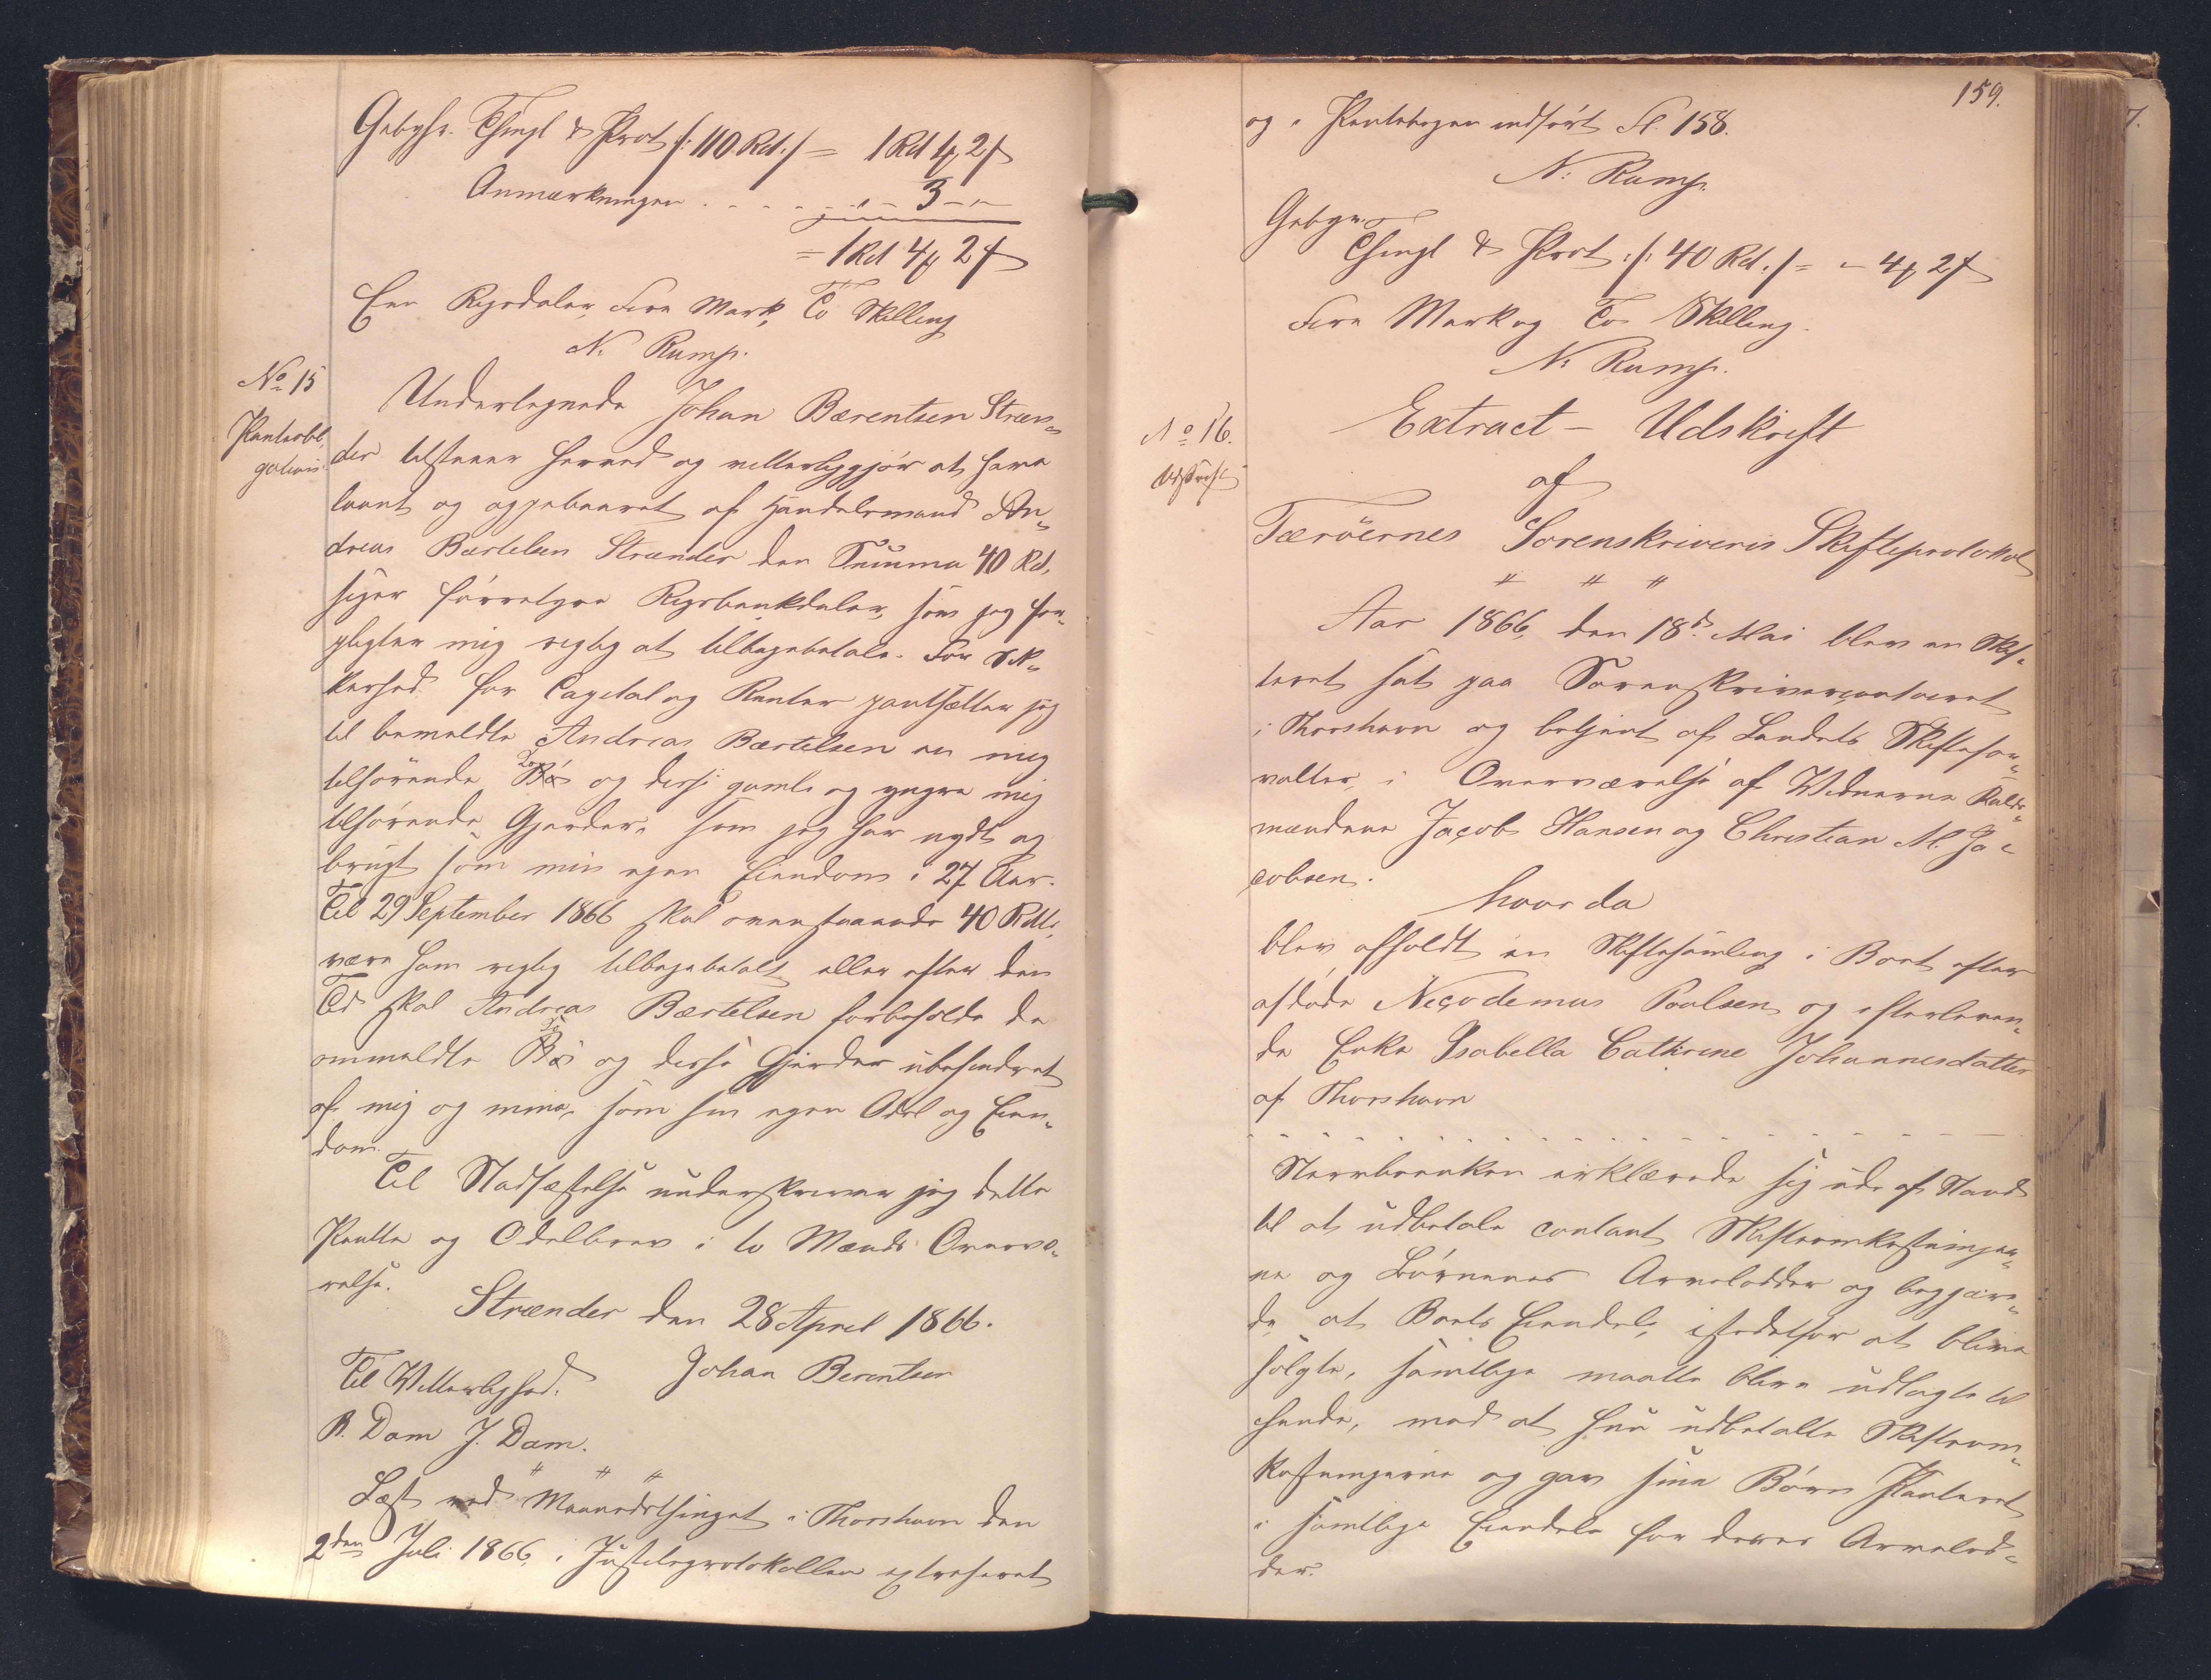 Gebyhr. Thingl & Prot /: 110 Rd :/ = 1 Rd 4 ꝶ 2 ß
Anmærkningen . . . . . " - 3 - "
= 1 Rd 4 ꝶ 2 ß
Een Rigsdaler, Fire Mark, To Skilling
N. Rump.
No 15
Panteobli
gation
Undertegnede Johan Bærentsen Stræn-
der tilstaaer herved og vitterliggjör at have
laant og oppebaaret af Handelsmand An-
dreas Bærtelsen Strænder den Summa 40 Rd,
siger fürretyve Rigsbankdaler, som jeg for-
pligter mig rigtig at tilbagebetale. For Sik-
kerhed for Capital og Renter pantsætter jeg
til bemeldte Andreas Bærtelsen en mig
tilhörende Bö og disse gamle og yngre mig
tilhörende Gjerder, som jeg har nydt og
brugt som min egen Eiendom i 27 Aar.
Til 29 September 1866 skal ovenstaaende 40 Rdlr,
være ham rigtig tilbagebetalt eller efter den
Tid skal Andreas Bærtelsen forbeholde de
ommeldte Bö og disse Gjerder ubehindret
af mig og mine, som sin egen Odel og Eien-
dom.
Til Stadfæstelse underskriver jeg dette
Pante og Odelbrev i to Mænds Overvæ-
relse.
Strænder den 28 April 1866.
Til Vitterlighed. Johan Berentsen
B. Dam J. Dam.
" " "
Læst ved Maanedsthinget i Thorshavn den
2den Juli 1866, i Justitsprotokollen extraheret
159.
og i Pantebogen indfört Fl. 158.
N. Rump.
Gebyr.
Thingl & Prot. /: 40 Rd. :/ = " 4 ꝶ 2 ß
Fire Mark og To Skilling.
N. Rump.
No 16.
Udskrift
Extract - Udskrift
af
Færöernes Sorenskriveris Skifteprotokol
" " "
Aar 1866, den 18d Mai blev en Skif-
teret sat paa Sorenskrivercontoiret
i Thorshavn og betjent af Landets Skiftefor-
valter, i Overværelse af Vidnerne Kald-
mændene Jacob Hansen og Christian M. Ja-
cobsen.
hvor da
blev afholdt en Skiftesamling i Boet efter
afdöde Nicodemus Poulsen og efterleven-
de Enke Isabella Cathrine Johannesdatter
af Thorshavn
- - - - - - - - - -
Stervboenken erklærede sig ude af Stand
til at udbetale contant Skifteomkostninger-
ne og Börnenes Arvelodder og begjære-
de, at Boets Eiendele, istedetfor at blive
solgte, samtlige maatte blive udlagte til
hende, mod at hun udbetalte Skifteom-
kostningerne og gav sine Börn Panteret
i samtlige Eiendele for deres Arvelod-
der.